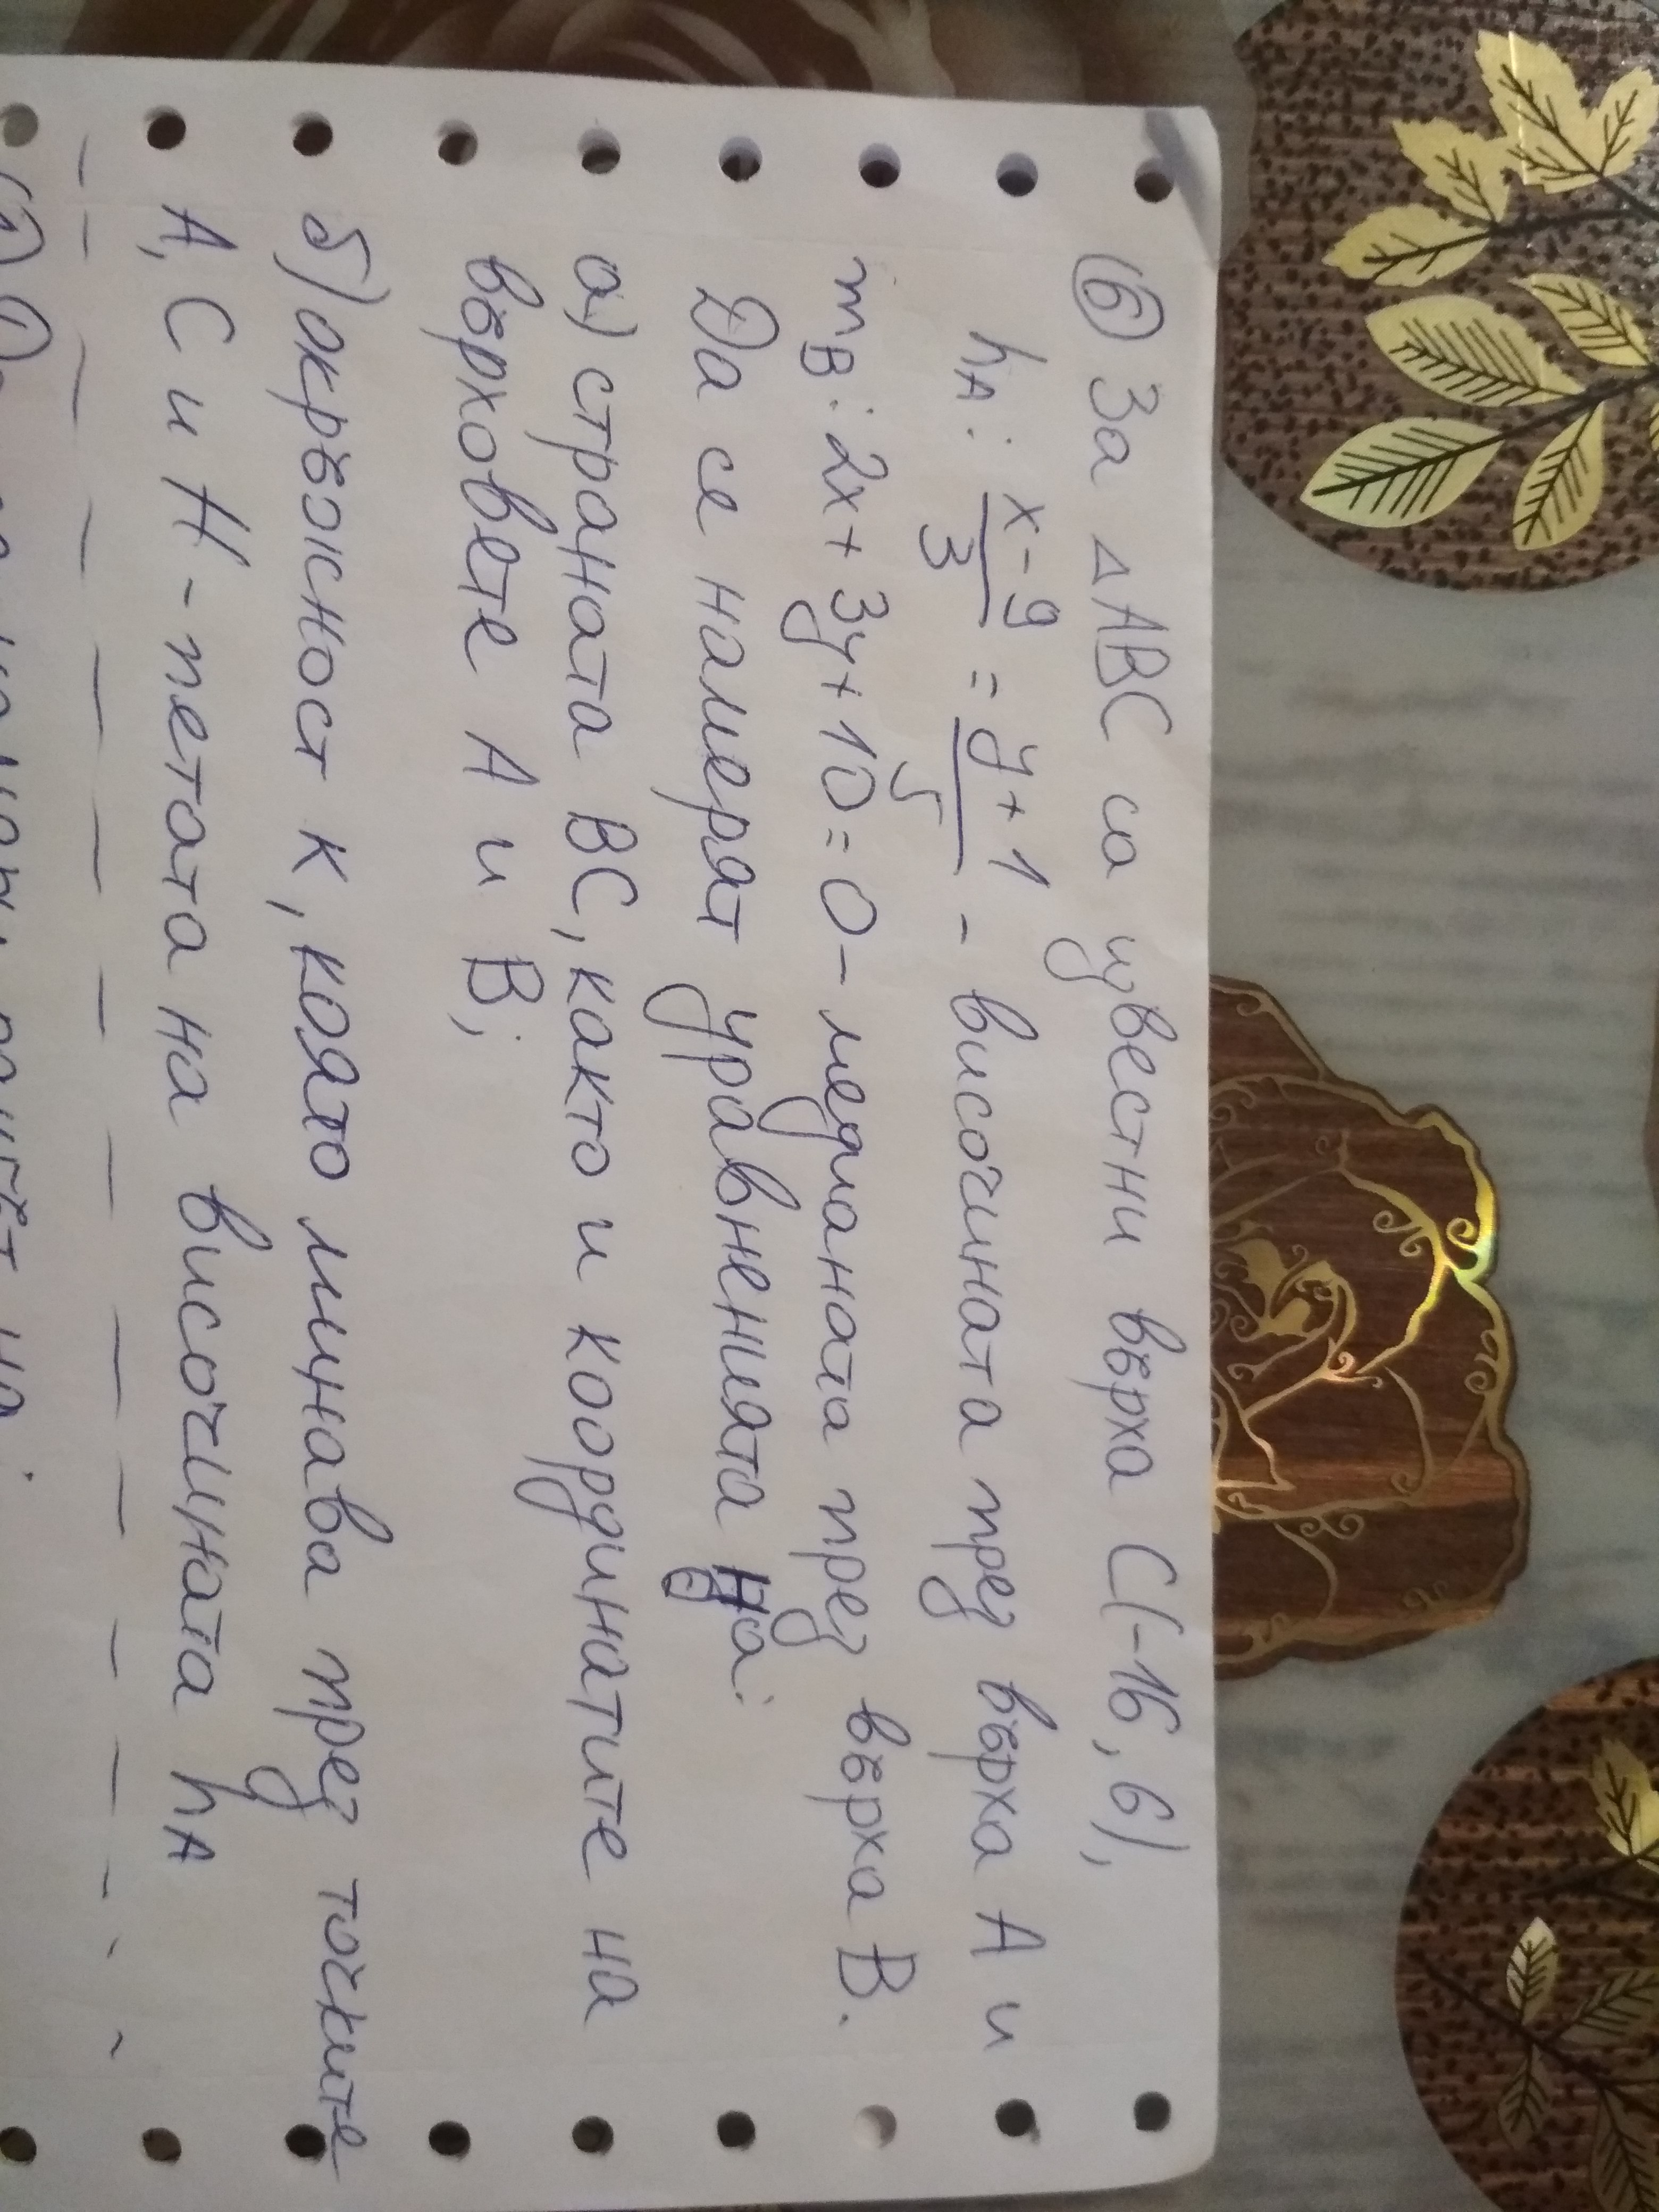 6) За △ABC са известни върха C(-16, 6),
h_A: (x-9)/3 = (y+1)/5 - височината през върха A и
m_B: 2x+3y+10=0 - медианата през върха B.
Да се намерят уравненията на:
а) страната BC, както и координатите на
върховете A и B;
б) окръжност k, която минава през точките
A, C и H - петата на височината h_A